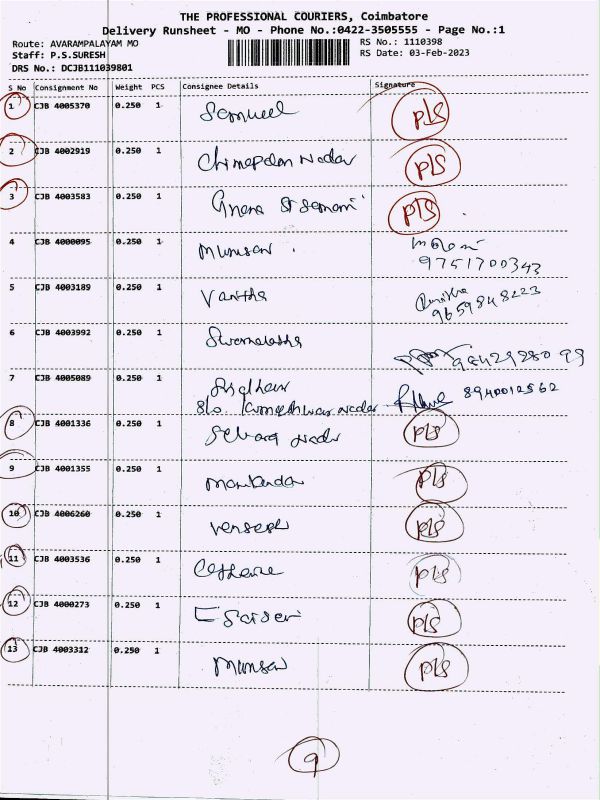 THE PROFESSIONAL COURIERS, Coimbatore
Delivery Runsheet - MO - Phone No.:0422-3505555 - Page No.:1
Route: AVARAMPALAYAM MO
RS No.: 1110398
Staff: P.S.SURESH
RS Date: 03-Feb-2023
DRS No.: DCJB111039801
S No Consignment No Weight PCS Consignee Details Signature
1 CJB 4005370 0.250 1 Samuel P/S
2 CJB 4002919 0.250 1 Nadar P/S
3 CJB 4003583 0.250 1 P/S
4 CJB 4000095 0.250 1
9751700343
5 CJB 4003189 0.250 1 Vanitha
9659848223
6 CJB 4003992 0.250 1 Swarnalatha
7 CJB 4005089 0.250 1
S/o Kameshwar Nadar 8940012562
8 CJB 4001336 0.250 1 P/S
9 CJB 4001355 0.250 1 P/S
10 CJB 4006260 0.250 1 P/S
11 CJB 4003536 0.250 1 P/S
12 CJB 4000273 0.250 1 P/S
13 CJB 4003312 0.250 1 P/S
9